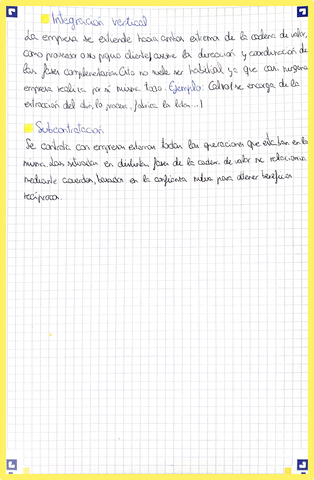 Integración vertical
La empresa se extiende hacia ambos extremos de la cadena de valor,
como proveedor o su propio cliente, asume la dirección y coordinación de
las fases complementarias. Esto no suele ser habitual ya que casi ninguna
empresa realiza por sí misma todo. Ejemplo: se encarga de la
extracción del, lo procesa, fabrica la lata...)
Subcontratación
Se contrata con empresas externas todas las operaciones que están en la
misma. Las situadas en distintas fases de la cadena de valor se relacionan
mediante acuerdos, basados en la confianza mutua para obtener beneficios
recíprocos.